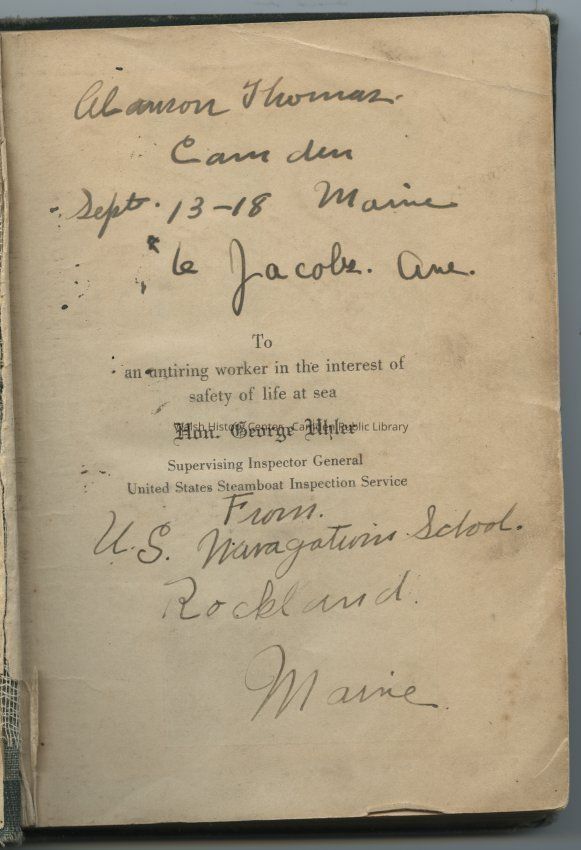 Alanson Thomas.
Camden
Sept. 13-18 Maine
6 Jacobs. Ave.
To
an untiring worker in the interest of
safety of life at sea
Hon. George Uhler
Walsh History Center, Camden Public Library
Supervising Inspector General
United States Steamboat Inspection Service
From.
U.S. Navagations School.
Rockland.
Maine